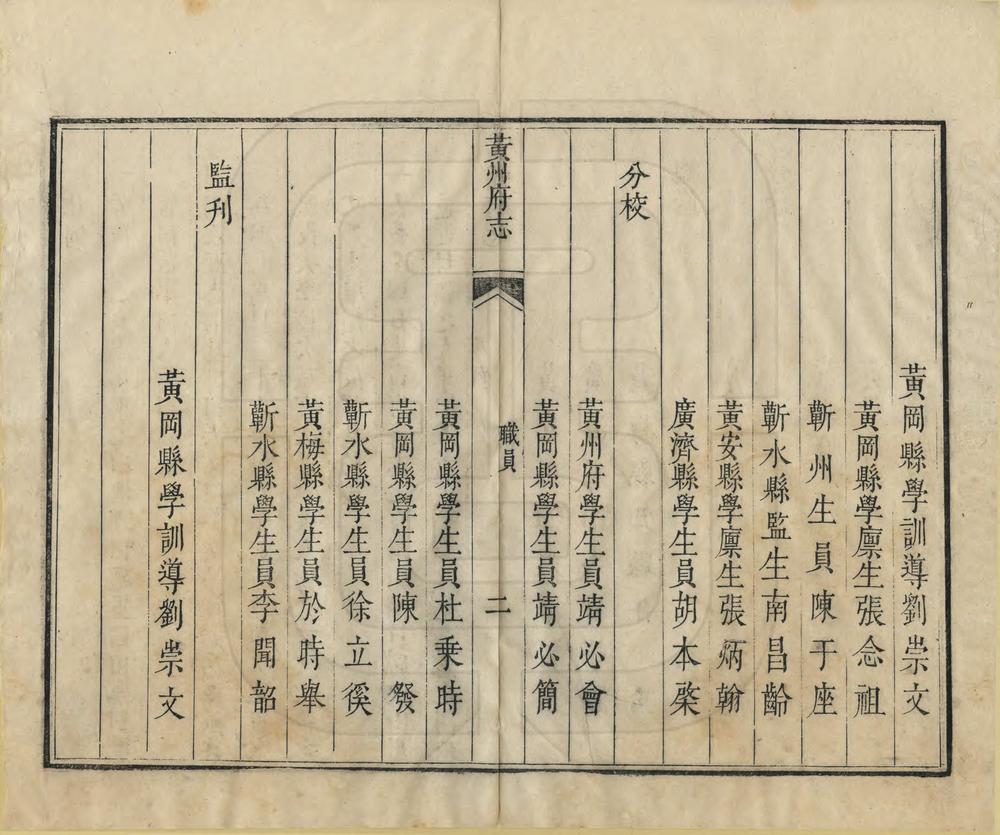 黃岡縣學訓導劉崇文
黃岡縣學廩生張念祖
蘄州生員陳于座
蘄水縣監生南昌齡
黃安縣學廩生張炳翰
廣濟縣學生員胡本棨
分校
黃州府學生員靖必會
黃岡縣學生員靖必簡
黃州府志
職員
二
黃岡縣學生員杜乗時
黃岡縣學生員陳發
蘄水縣學生員徐立徯
黃梅縣學生員於時舉
蘄水縣學生員李聞韶
監刋
黃岡縣學訓導劉崇文